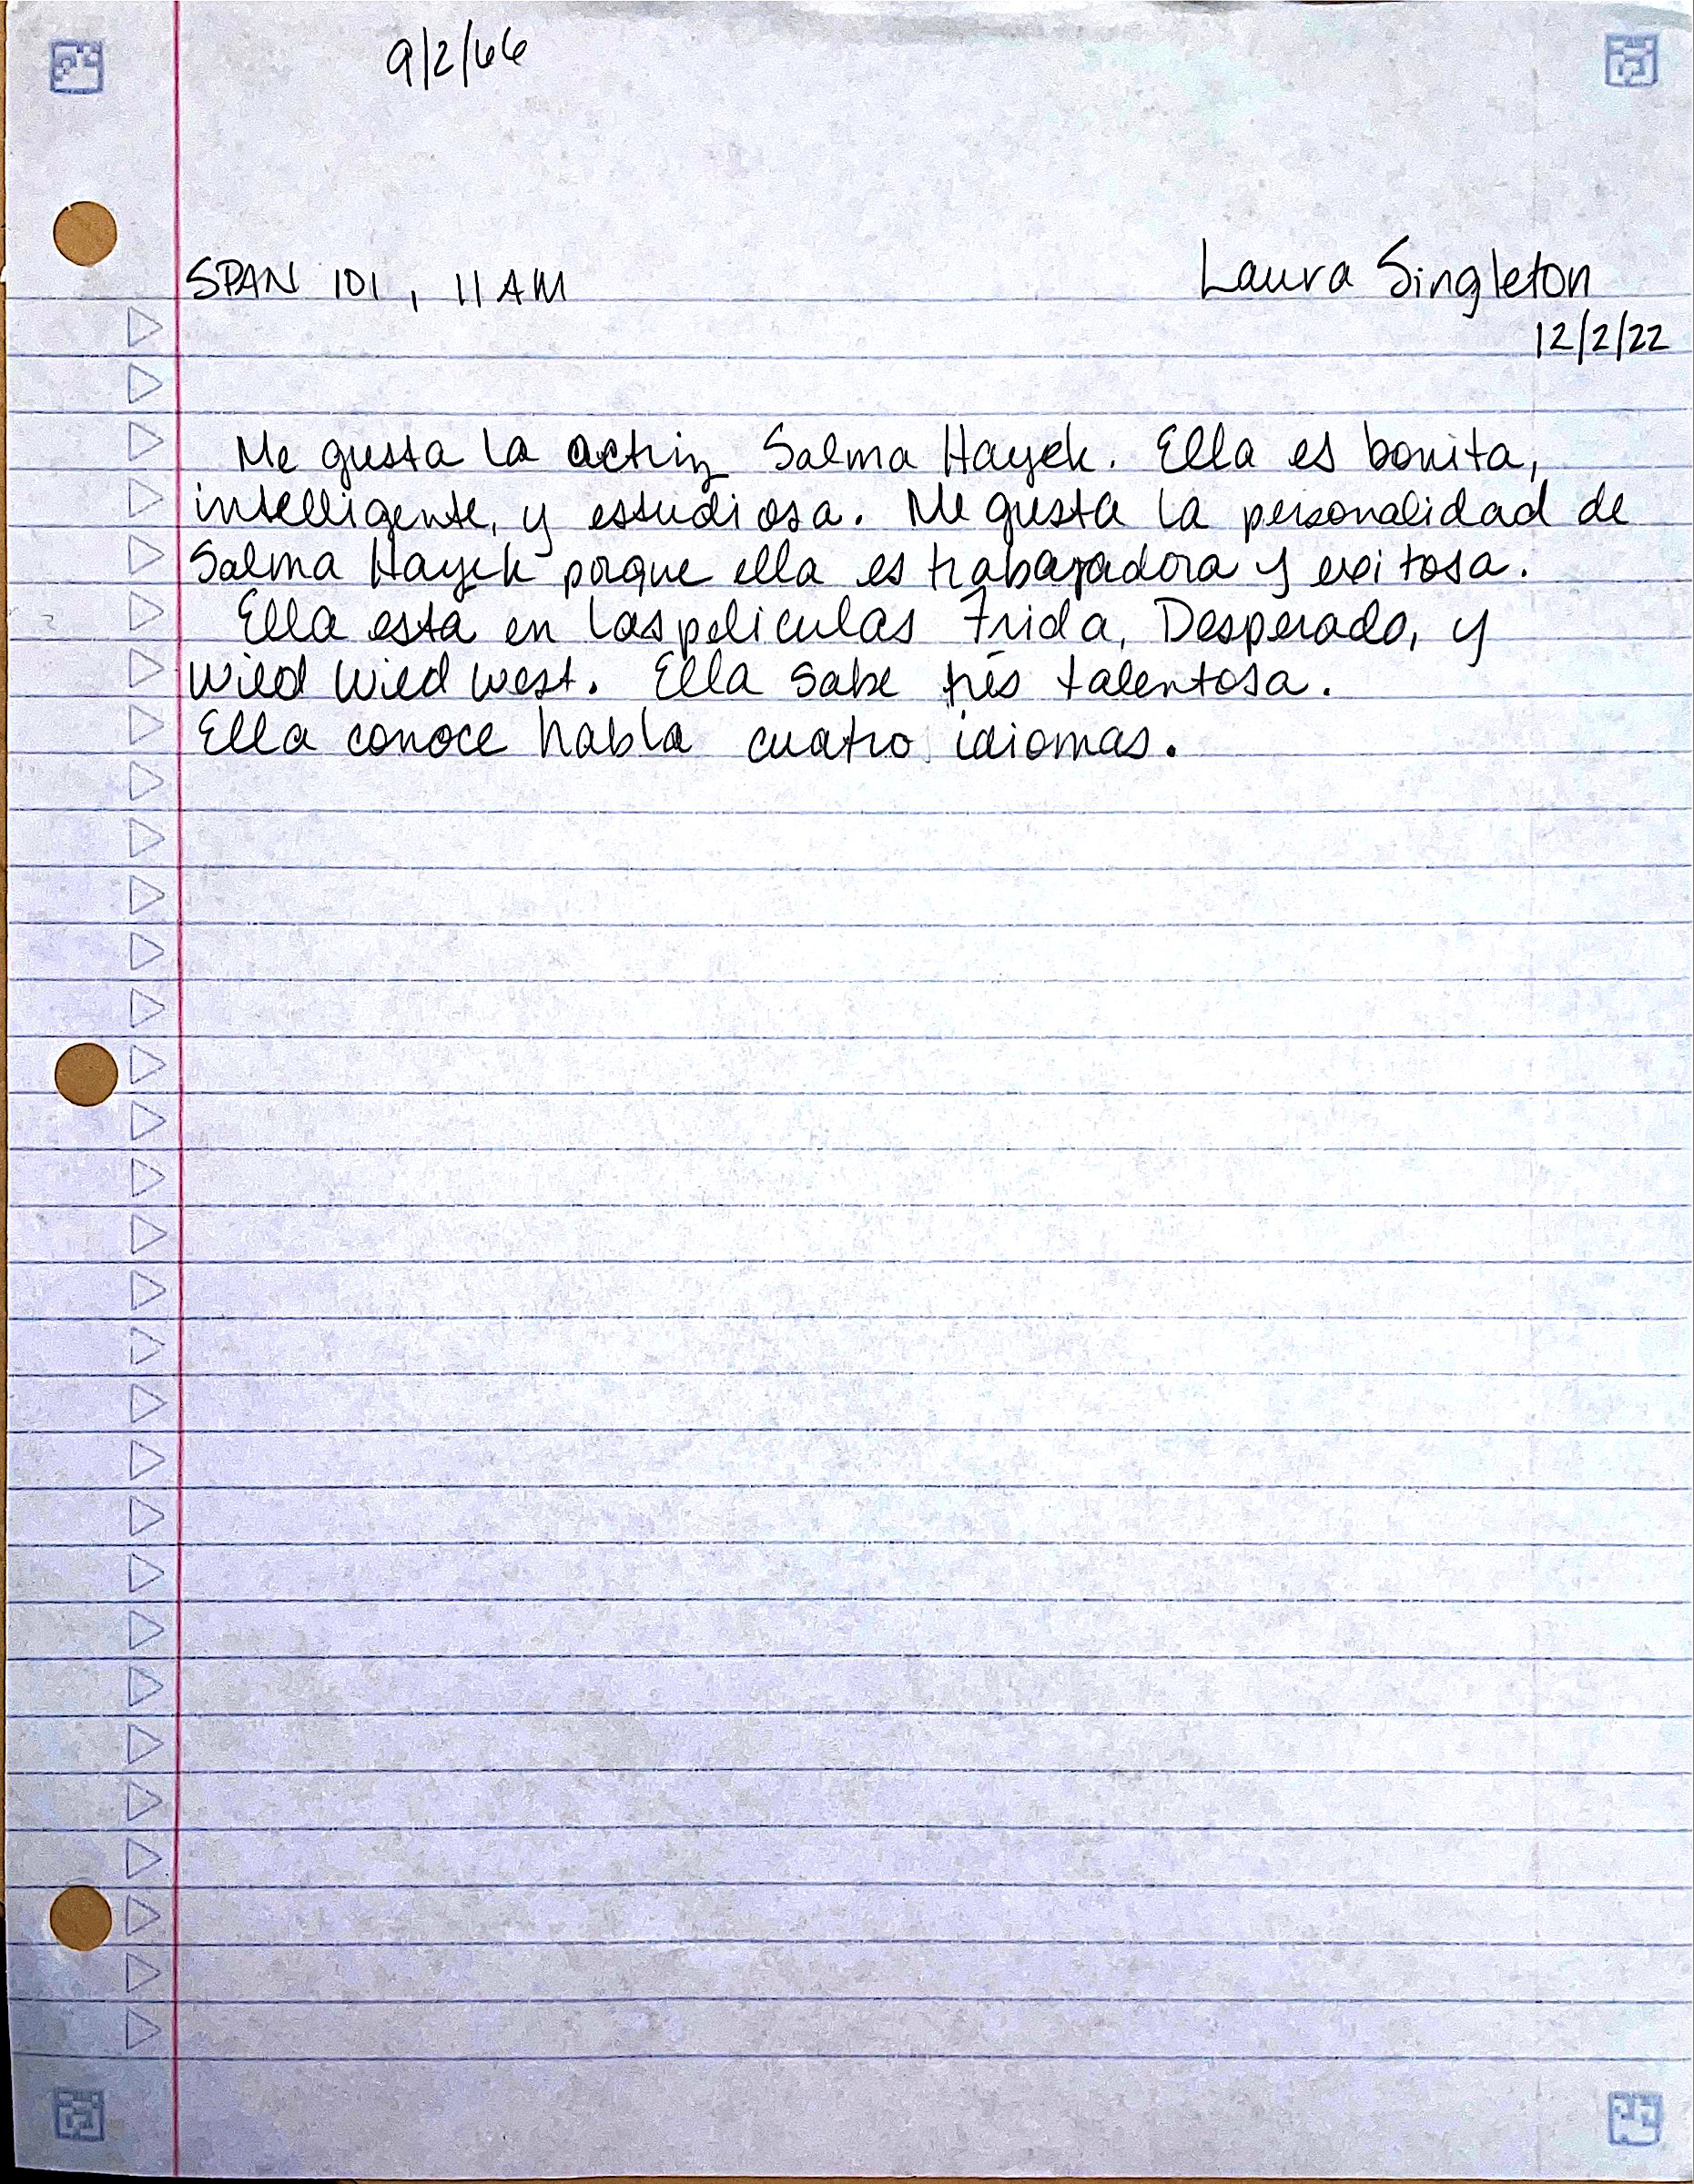 9/2/66
SPAN 101, 11 AM
Laura Singleton
12/2/22
Me gusta la actriz Salma Hayek. Ella es bonita,
intelligente, y estudiosa. Me gusta la personalidad de
Salma Hayek porque ella es trabajadora y exitosa.
Ella esta en las peliculas Frida, Desperado, y
Wild Wild West. Ella sabe trés talentosa.
Ella conoce habla cuatro idiomas.